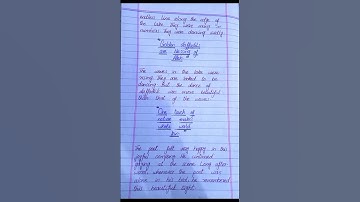 endless line along the edge of
the lake they were many in
numbers they were dancing sadly
"Golden daffodils
are blessing of
The waves in the lake were
rising they are looked to be
dancing But the dance of
daffodils was more beautiful
than that of the waves.
"One touch of
nature makes
whole world
kin"
The poet felt very happy in this
joyful company He continued
gazing at the scene Long after
ward, whenever the poet was
alone in his bed, he remembered
this beautiful sight.